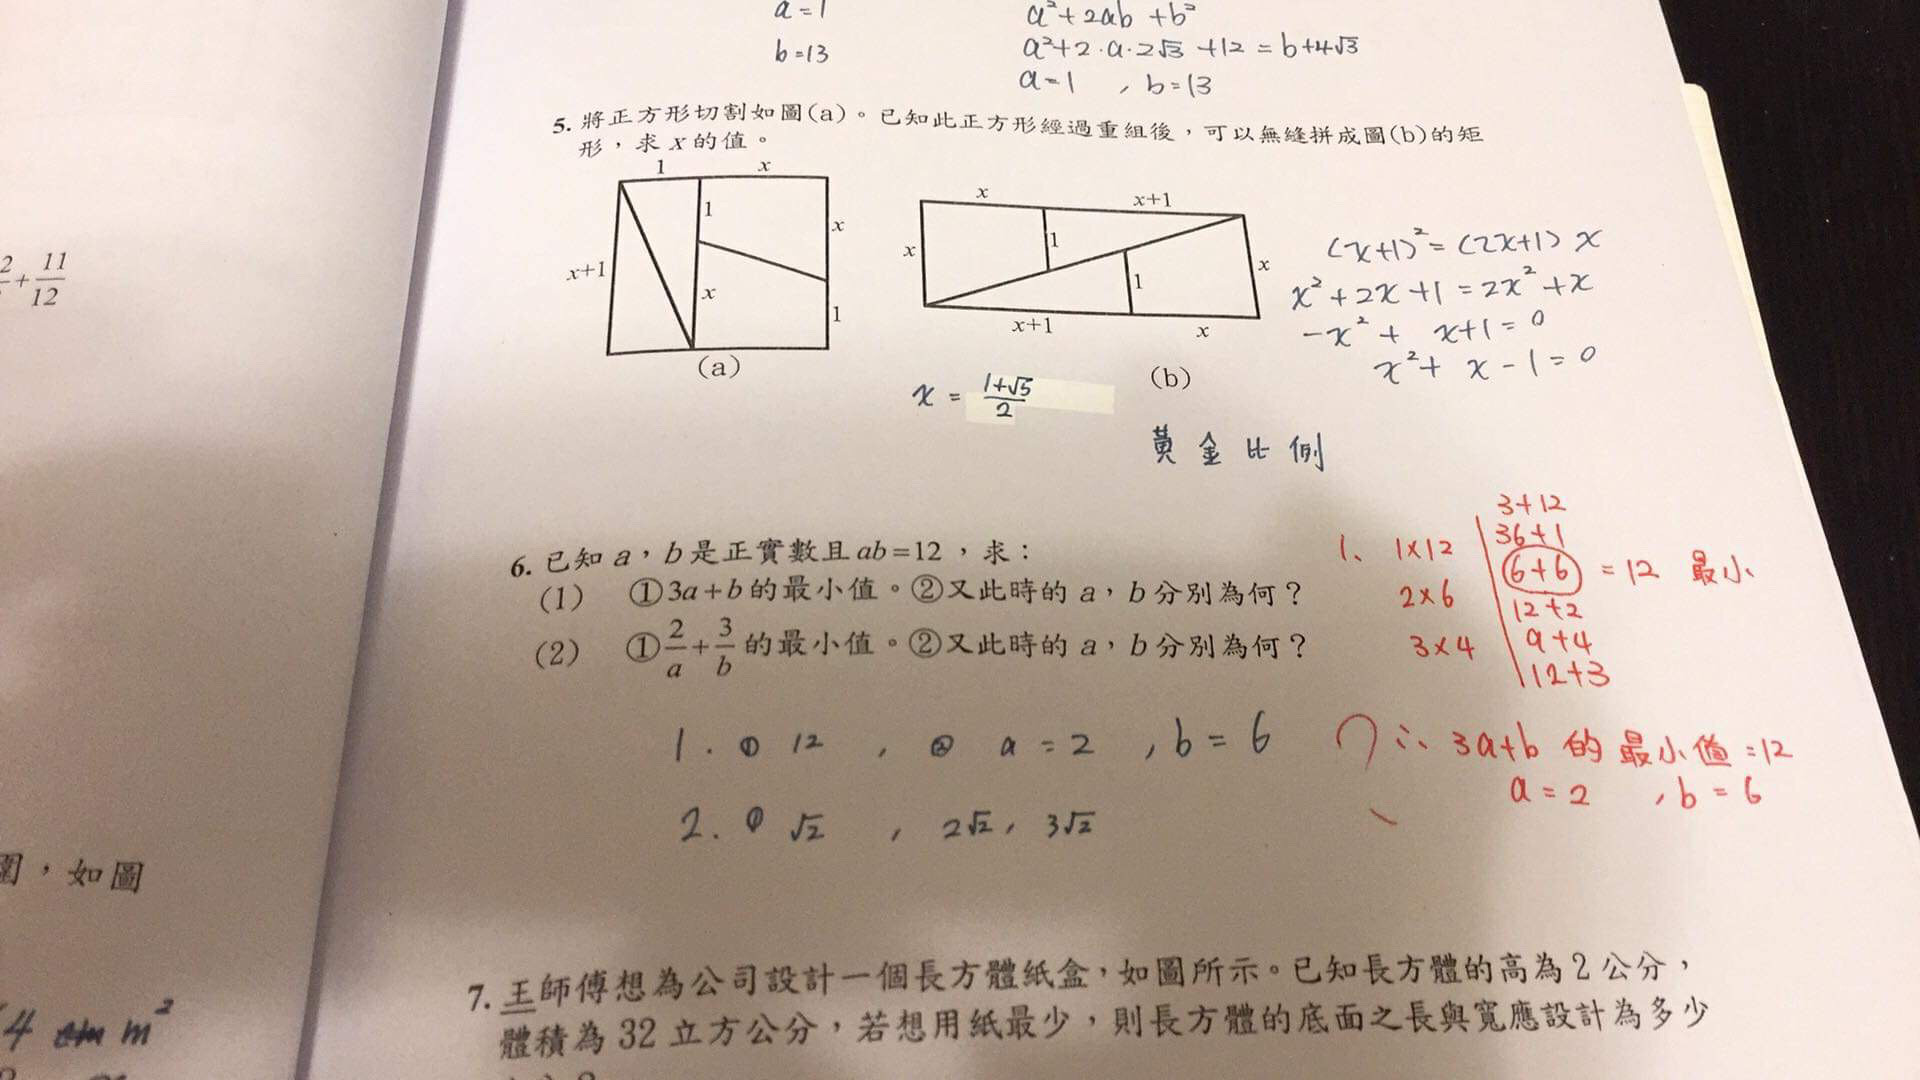 a=1
b=13
a²+2ab+b²
a²+2·a·2√3+12=b+4√3
a=1，b=13
5. 將正方形切割如圖(a)。已知此正方形經過重組後，可以無縫拼成圖(b)的矩
形，求x的值。
1 x
1
x
x+1
x
1
(a)
x x+1
x
1
1
x
x+1 x
(b)
(x+1)²=(2x+1)x
x²+2x+1=2x²+x
-x²+ x+1=0
x²+ x-1=0
x = (1+√5)/2
黃金比例
2 + 11/12
6. 已知a，b是正實數且ab=12，求：
(1) ①3a+b的最小值。②又此時的a，b分別為何？
(2) ①2/a+3/b的最小值。②又此時的a，b分別為何？
1、 1×12
2×6
3×4
3+12
36+1
6+6 =12 最小
12+2
9+4
12+3
1. ① 12 , ② a=2 , b=6
∴ 3a+b 的最小值=12
a=2 , b=6
2. ① √2 , 2√2, 3√2
圍，如圖
4 cm m²
7. 王師傅想為公司設計一個長方體紙盒，如圖所示。已知長方體的高為2公分，
體積為32立方公分，若想用紙最少，則長方體的底面之長與寬應設計為多少